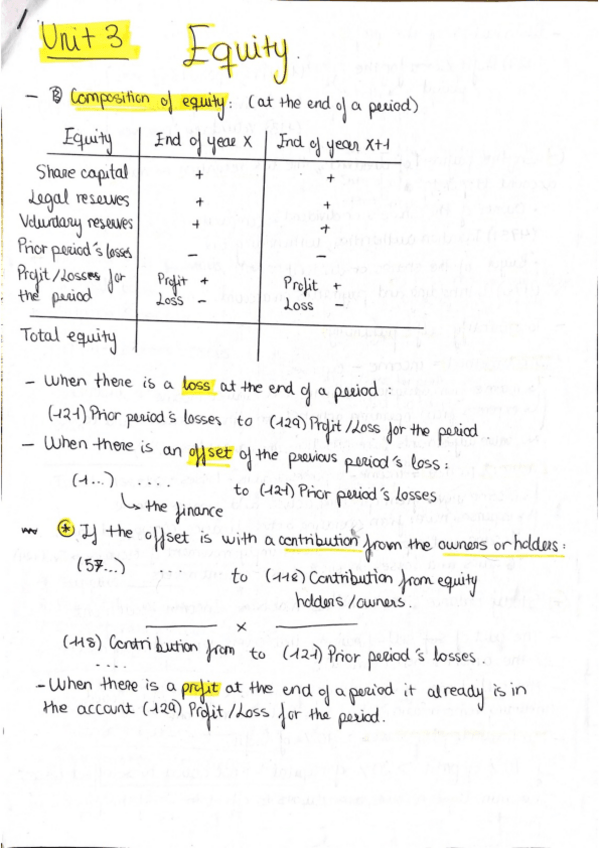 Unit 3
Equity.
- B) Composition of equity: (at the end of a period)
Equity End of year X End of year X+1
Share capital + +
Legal reserves + +
Voluntary reserves + +
Prior period's losses - -
Profit/Losses for the period Profit + Loss - Profit + Loss -
Total equity
- When there is a loss at the end of a period:
(121) Prior period's losses to (129) Profit/Loss for the period
- When there is an offset of the previous period's loss:
(1...) .... to (121) Prior period's losses
↳ the finance
* If the offset is with a contribution from the owners or holders:
(57...) .... to (118) Contribution from equity
holders/owners.
x
(118) Contribution from to (121) Prior period's losses.
....
- When there is a profit at the end of a period it already is in
the account (129) Profit/Loss for the period.